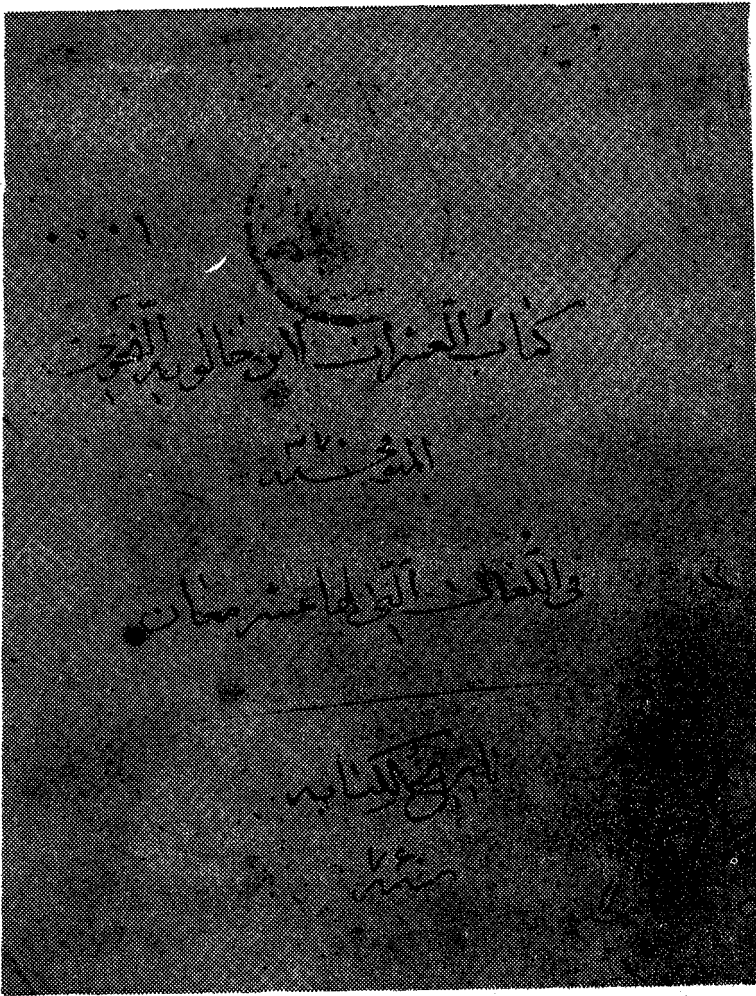 كتاب العشرات لابن خالويه النحوى
المتوفى سنة ٣٧٠
فى الكلمات التى لها عشر معان
تاريخ الكتابه
سنة ٧٤٠